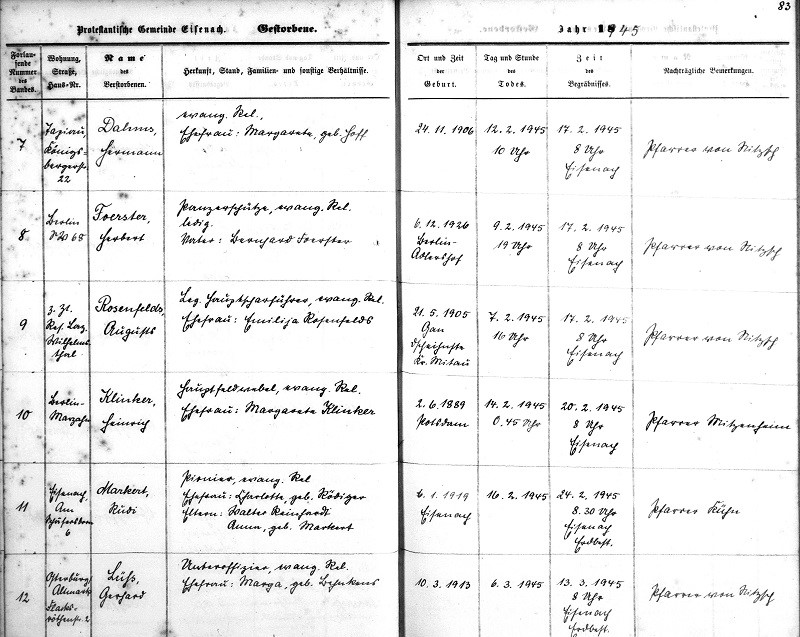 83
Protestantische Gemeinde Eisenach. Gestorbene.
Jahr 1945
Fortlau-
fende
Nummer
des
Bandes.
Wohnung,
Straße,
Haus-Nr.
Name
des
Verstorbenen.
Herkunft, Stand, Familien- und sonstige Verhältnisse.
Ort und Zeit
der
Geburt.
Tag und Stunde
des
Todes.
Zeit
des
Begräbnisses.
Nachträgliche Bemerkungen.
7
Königs-
bergerstr.
22
Dahms,
Hermann
evang. Rel.,
Ehefrau: Margarete, geb. Hoff
24. 11. 1906
12. 2. 1945
10 Uhr
17. 2. 1945
8 Uhr
Eisenach
Pfarrer von Nitzsch
8
Berlin
SW 68
Foerster,
Herbert
Panzerschütze, evang. Rel.
ledig.
Vater: Bernhard Foerster
6. 12. 1926
Berlin-
Adlershof
9. 2. 1945
19 Uhr
17. 2. 1945
8 Uhr
Eisenach
Pfarrer von Nitzsch
9
z. Zt.
Res. Laz.
Wilhelms-
thal
Rosenfelds,
Augusts
Leg. Hauptscharführer, evang. Rel.
Ehefrau: Emilija Rosenfelds
21. 5. 1905
Kr. Mitau
7. 2. 1945
16 Uhr
17. 2. 1945
8 Uhr
Eisenach
Pfarrer von Nitzsch
10
Berlin-
Marzahn
Klinker,
Heinrich
Hauptfeldwebel, evang. Rel.
Ehefrau: Margarete Klinker
2. 6. 1889
Potsdam
14. 2. 1945
0.45 Uhr
20. 2. 1945
8 Uhr
Eisenach
Pfarrer Mitzenheim
11
Eisenach,
Am
6
Markert,
Rudi
Pionier, evang. Rel
Ehefrau: Charlotte, geb. Rödiger
Eltern: Walter Reinhardt
Anna, geb. Markert
6. 1. 1919
Eisenach
16. 2. 1945
24. 2. 1945
8.30 Uhr
Eisenach
Erdbest.
Pfarrer Kühn
12
Osterburg/
Altmark
Lühs,
Gerhard
Unteroffizier, evang. Rel.
Ehefrau: Marga, geb. Behnkens
10. 3. 1913
6. 3. 1945
13. 3. 1945
8 Uhr
Eisenach
Erdbest.
Pfarrer von Nitzsch